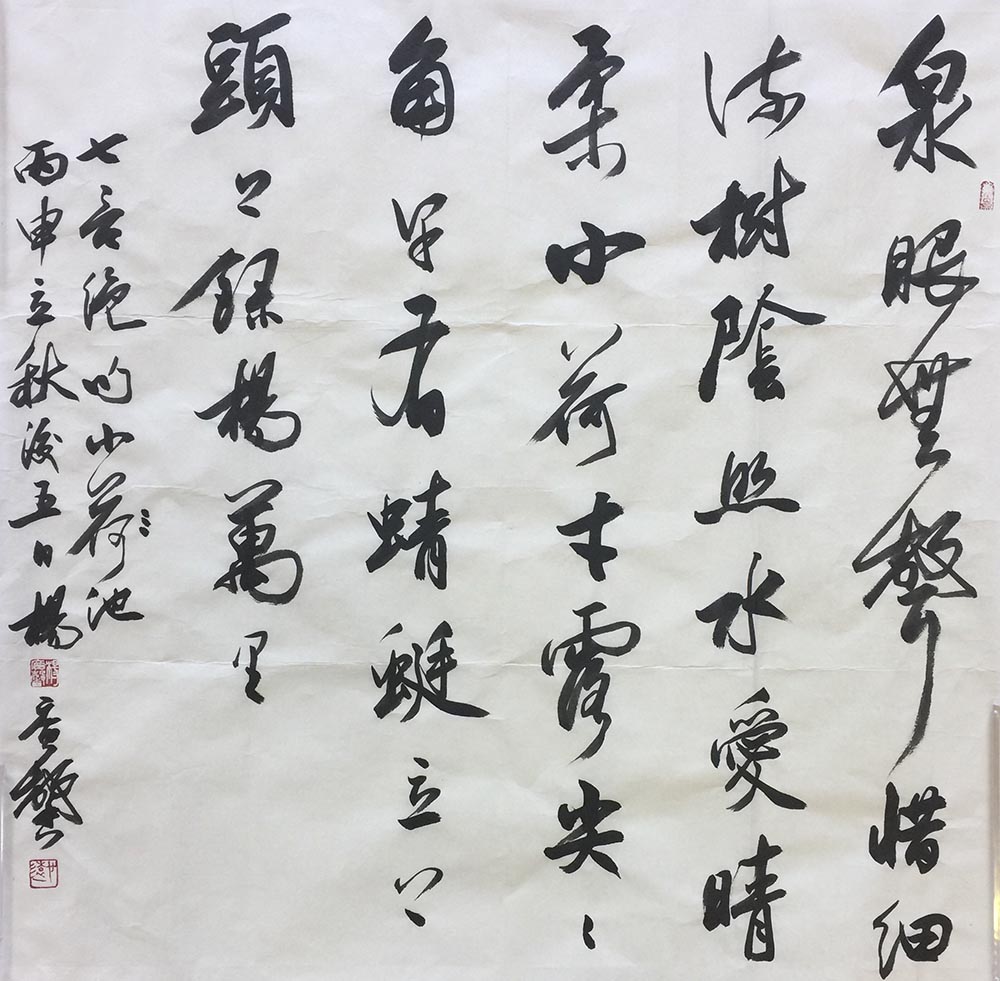 泉眼無聲惜細
流樹陰照水愛晴
柔小荷才露尖〻
角早有蜻蜓立上
頭上錄楊萬里
七言絕句小荷池
丙申立秋後五日楊